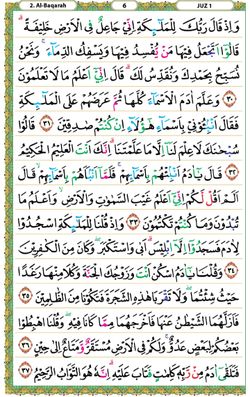 2. Al-Baqarah 6 JUZ 1
وَإِذْ قَالَ رَبُّكَ لِلْمَلَٰٓئِكَةِ إِنِّي جَاعِلٌ فِي الْأَرْضِ خَلِيفَةً ۖ
قَالُوٓا أَتَجْعَلُ فِيهَا مَنْ يُفْسِدُ فِيهَا وَيَسْفِكُ الدِّمَآءَ ۚ وَنَحْنُ
نُسَبِّحُ بِحَمْدِكَ وَنُقَدِّسُ لَكَ ۖ قَالَ إِنِّيٓ أَعْلَمُ مَا لَا تَعْلَمُونَ
﴿٣٠﴾ وَعَلَّمَ آدَمَ الْأَسْمَآءَ كُلَّهَا ثُمَّ عَرَضَهُمْ عَلَى الْمَلَٰٓئِكَةِ
فَقَالَ أَنْبِئُونِي بِأَسْمَآءِ هَٰٓؤُلَآءِ إِنْ كُنْتُمْ صَٰدِقِينَ ﴿٣١﴾ قَالُوا
سُبْحَٰنَكَ لَا عِلْمَ لَنَآ إِلَّا مَا عَلَّمْتَنَآ ۖ إِنَّكَ أَنْتَ الْعَلِيمُ الْحَكِيمُ
﴿٣٢﴾ قَالَ يَٰٓـَٔادَمُ أَنْبِئْهُمْ بِأَسْمَآئِهِمْ ۖ فَلَمَّآ أَنْبَأَهُمْ بِأَسْمَآئِهِمْ قَالَ
أَلَمْ أَقُلْ لَكُمْ إِنِّيٓ أَعْلَمُ غَيْبَ السَّمَٰوَٰتِ وَالْأَرْضِ وَأَعْلَمُ مَا
تُبْدُونَ وَمَا كُنْتُمْ تَكْتُمُونَ ﴿٣٣﴾ وَإِذْ قُلْنَا لِلْمَلَٰٓئِكَةِ اسْجُدُوا
لِآدَمَ فَسَجَدُوٓا إِلَّآ إِبْلِيسَ أَبَىٰ وَاسْتَكْبَرَ وَكَانَ مِنَ الْكَٰفِرِينَ
﴿٣٤﴾ وَقُلْنَا يَٰٓـَٔادَمُ اسْكُنْ أَنْتَ وَزَوْجُكَ الْجَنَّةَ وَكُلَا مِنْهَا رَغَدًا
حَيْثُ شِئْتُمَا وَلَا تَقْرَبَا هَٰذِهِ الشَّجَرَةَ فَتَكُونَا مِنَ الظَّٰلِمِينَ ﴿٣٥﴾
فَأَزَلَّهُمَا الشَّيْطَٰنُ عَنْهَا فَأَخْرَجَهُمَا مِمَّا كَانَا فِيهِ ۖ وَقُلْنَا اهْبِطُوا
بَعْضُكُمْ لِبَعْضٍ عَدُوٌّ ۖ وَلَكُمْ فِي الْأَرْضِ مُسْتَقَرٌّ وَمَتَٰعٌ إِلَىٰ حِينٍ ﴿٣٦﴾
فَتَلَقَّىٰٓ آدَمُ مِنْ رَبِّهِ كَلِمَٰتٍ فَتَابَ عَلَيْهِ ۚ إِنَّهُ هُوَ التَّوَّابُ الرَّحِيمُ ﴿٣٧﴾